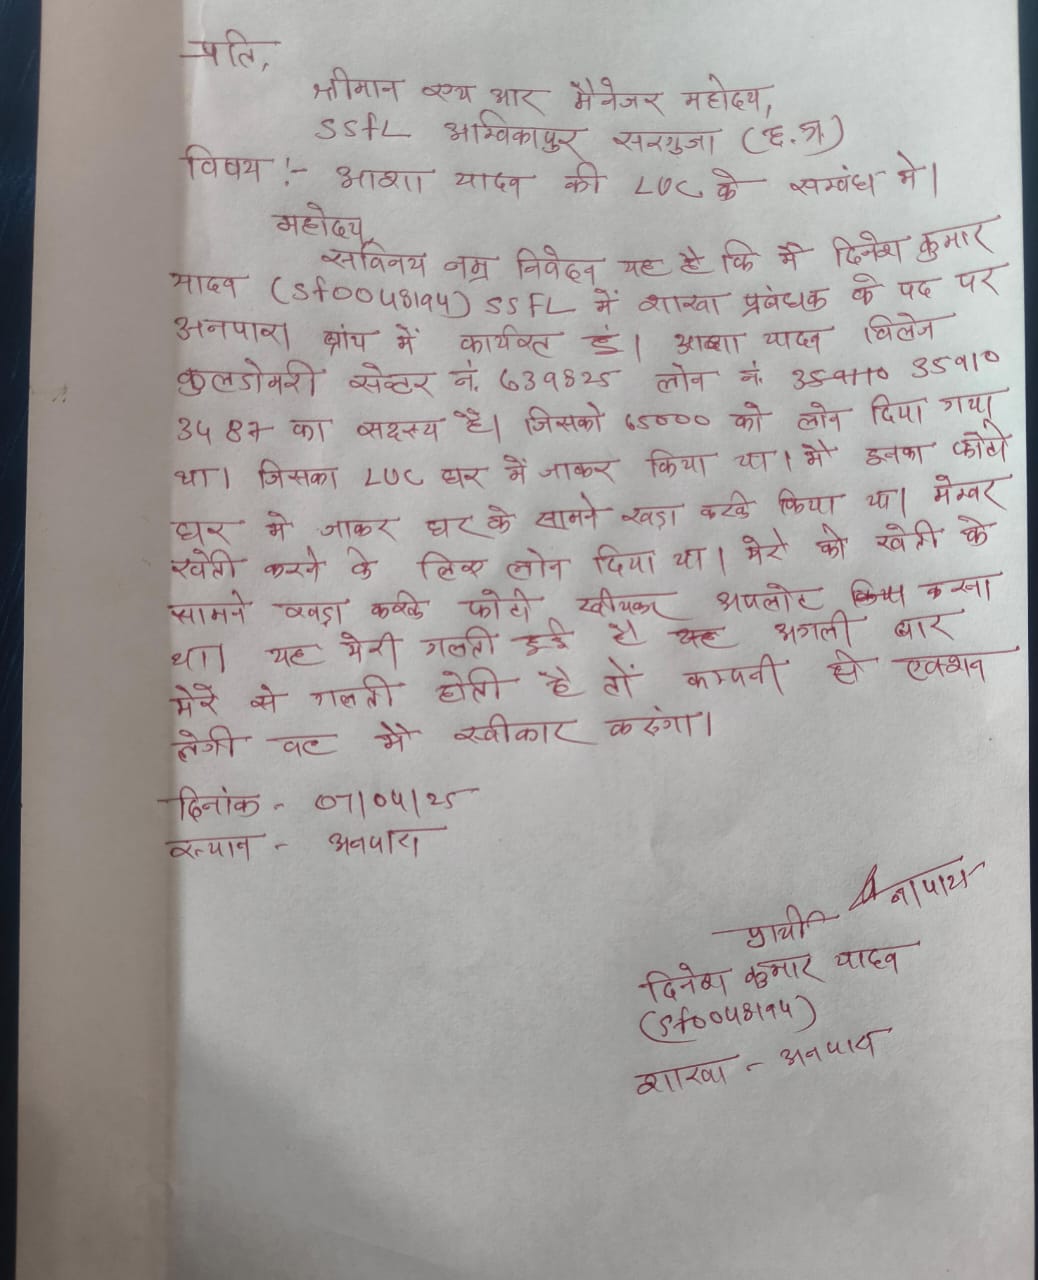 प्रति,
श्रीमान एच आर मैनेजर महोदय,
SSFL अम्बिकापुर सरगुजा (छ.ग.)
विषय :- आशा यादव की LUC के सम्बंध मे।
महोदय,
सविनय नम्र निवेदन यह है कि मै दिनेश कुमार
यादव (Sf0048194) SSFL में शाखा प्रबंधक के पद पर
अनपारा ब्रांच में कार्यरत हुं। आशा यादव विलेज
कुलडोमरी सेन्टर नं. 639825 लोन नं. 35910
3487 का सदस्य है। जिसको 65000 को लोन दिया गया
था। जिसका LUC घर में जाकर किया था। मै इनका फोटो
घर मे जाकर घर के सामने खड़ा करके किया था। मेम्बर
खेती करने के लिए लोन दिया था। मेरो को खेती के
सामने खड़ा करके फोटो खीचकर अपलोट करना
था। यह मेरी गलती हुई है। यह अगली बार
मेरे से गलती होती है तो कम्पनी जो एक्शन
लेगी वह मै स्वीकार करुंगा।
दिनांक - 07/04/25
स्थान - अनपारा
प्रार्थी
दिनेश कुमार यादव
(Sf0048194)
शाखा - अनपारा